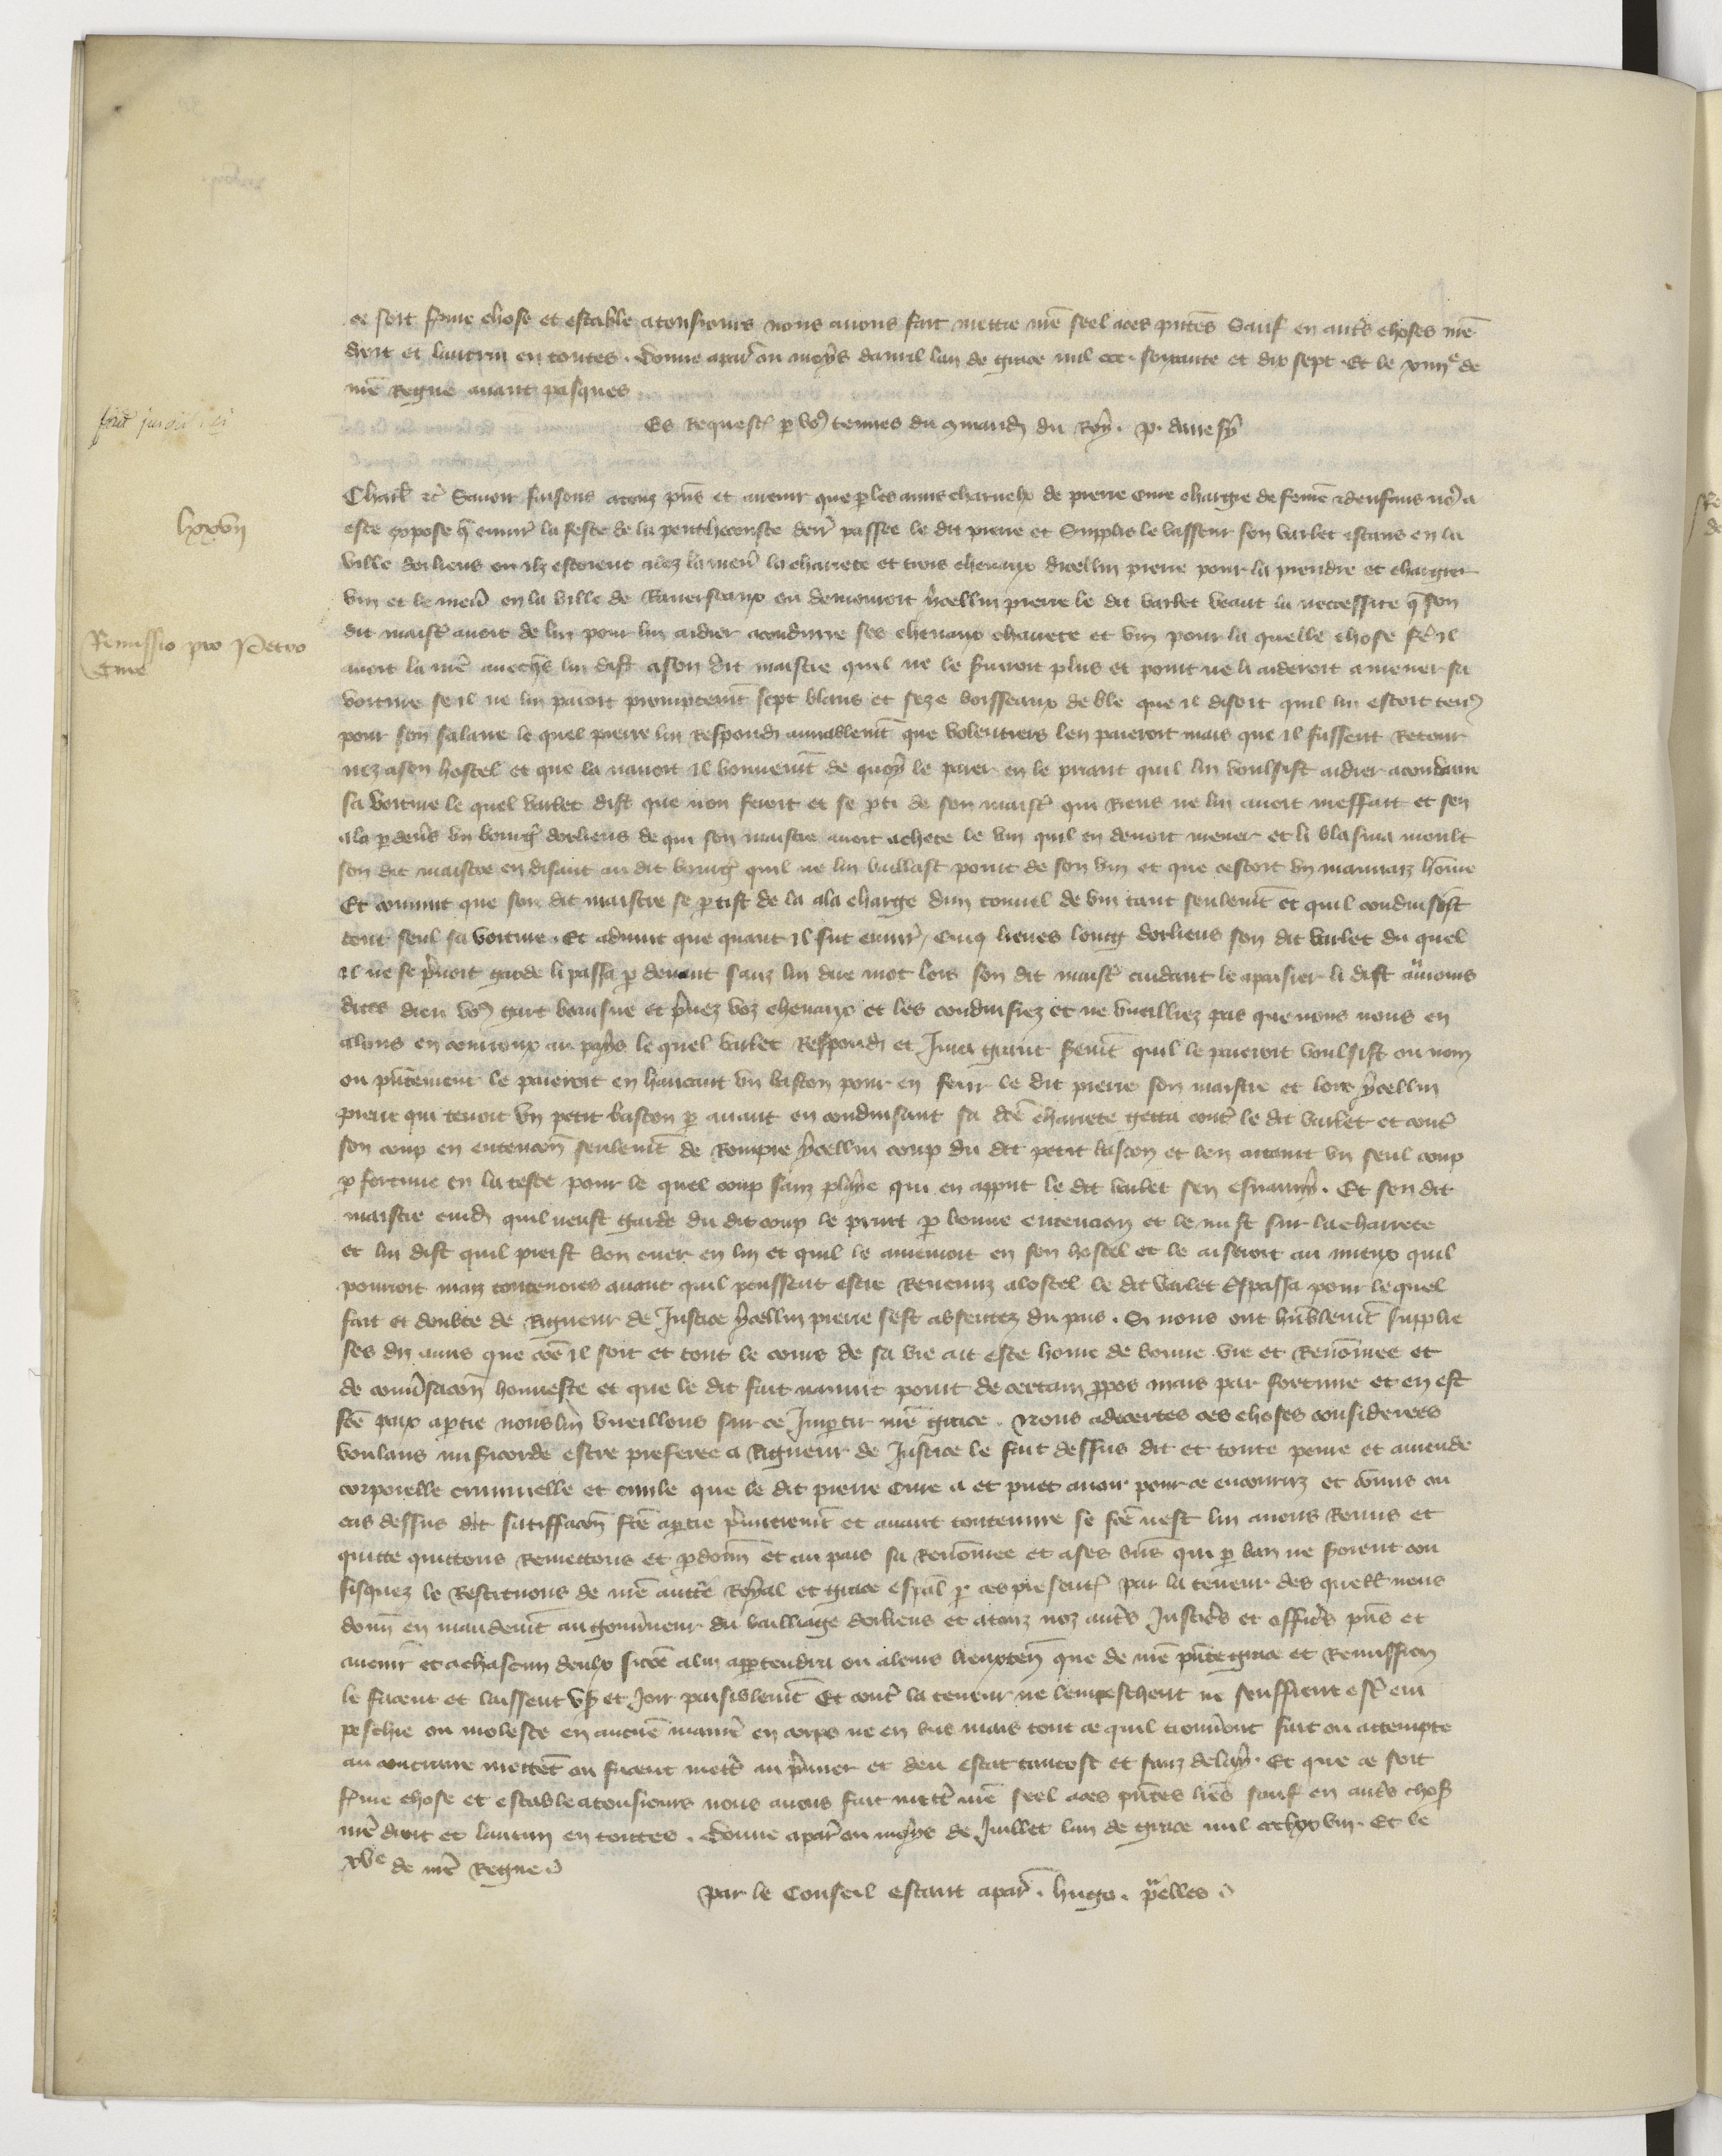 ce soit ferme chose et estable a tousiours nous avons fait mettre nre seel a ces pntes Sauf en autres choses nre
droit et lautruy en toutes . Donne a par ou moys davril lan de grace mil ccc . soixante et dix sept . Et le xiiiie de
nre Regne avant pasques
Es Requestes par vous tenues du comand du Roy . P. 
lxxvii
Charl etc Savoir faisons a touz pns et avenir que par les amis charnelx de pierre Cure chargie de feme et denfans nous a
este expose que environ la feste de la penthecouste derr passee le dit pierre et Supplis le vasseur son varlet estans en la
ville dorliens ou ilz estoient alez la mener la charrete et trois chevaux dicellui pierre pour la prendre et chargier
vin et le mener en la ville de  ou demouroit ycellui pierre le dit varlet veant la necessite que son
Remissio pro Petro
Cure
dit maistre avoit de lui pour lui aidier a conduire ses chevaux charrete et vin pour la quelle chose fere il
avoit la mene avecques lui dist a son dit maistre quil ne le serviroit plus et point ne li aideroit a mener sa
voiture se il ne lui paioit promptement sept blans et seze boisseaux de ble que il disoit quil lui estoit tenus
pour son salaire le quel pierre lui respondi amiablement que volentiers len paieroit mais que il fussent Retour
nez a son hostel et que la navoit il bonnement de quoy le paier en le priant quil lui voulsist aidier a conduire
sa voiture le quel varlet dist que non feroit et se parti de son maistre qui Riens ne lui avoit meffait et sen
ala par devers un bourgois dorliens de qui son maistre avoit achete le vin quil en devoit mener et li blasma moult
son dit maistre en disant au dit bourgois quil ne lui baillast point de son vin et que cestoit un mauvaiz home
Et convint que son dit maistre se partist de la a la charge dun tonnel de vin tant seulement et quil conduisist
tout seul sa voiture . Et advint que quant il fut environ cinq lieues loing dorliens son dit varlet du quel
il ne se prenoit garde li passa par devant sanz lui dire mot lors son dit maistre cuidant le apaisier li dist aumoins
dites dieu vous gart  et prenez voz chevaux et les conduisiez et ne vueilliez pas que nous nous en
alons en courroux au pays le quel varlet Respondi et Jura grant serment quil le paieroit voulsist ou non
ou prestement le paieroit en haucant un baston pour en ferir le dit pierre son maistre et lors ycellui
pierre qui tenoit un petit baston par avant en conduisant sa dite charrete getta contre le dit varlet et contre
son coup en entencion seulement de Rompre ycellui coup du dit petit baston et len attaint un seul coup
par fortune en la teste pour le quel coup sanz playe qui en apparut le dit varlet sen esvanuy . Et son dit
maistre cuidant quil neust garde du dit coup le prist par bonne entencion et le mist sur la charrete
et lui dist quil preist bon cuer en lui et quil le amenroit en son hostel et le aiseroit au mieux quil
pourroit maiz toutevoies avant quil peussent estre Revenuz a lostel le dit varlet trespassa pour le quel
fait et doubte de Rigueur de Justice ycellui pierre sest absentez du pais . Si nous ont humblement supplie
ses diz amis que come il soit et tout le cours de sa vie ait este home de bonne vie et Renomee et
de conversacion honneste et que le dit fait navint point de certain propos mais par fortune et en est
faite paix a partie nous lui vueillons sur ce Impartir nre grace . Nous adecertes ces choses considerees
voulans misericorde estre preferee a Rigueur de Justice le fait dessus dit et toute peine et amende
corporelle criminelle et civile que le dit pierre Cure a et puet avoir pour ce encouruz et commis ou
cas dessus dit satiffacion faite a partie premierement et avant toutevuvre se faite nest lui avons Remis et
quitte quittons Remettons et pardonnons et au pais sa Renomee et a ses biens qui par ban ne seroient con
fisquez le Restituons de nre auctorite Royal et grace especial par ces presentes par la teneur des quelles nous
donnons en mandement au gouverneur du bailliage dorliens et a touz noz autres Justiciers et officiers pns et
avenir et a chascun deulx sicome a lui appartendra ou a leurs lieuxtenans que de nre pnte grace et Remission
le facent et laissent user et Joir paisiblement Et contre la teneur ne lempeschent ne seuffrent estre em
peschie ou moleste en aucune maniere en corps ne en biens mais tout ce quil trouveront fait ou attempte
au contraire mettent ou facent mettre au premier et deu estat tantost et sanz delay . Et que ce soit
ferme chose et estable a tousiours nous avons fait mettre nre seel a ces pntes lres sauf en autres choses
nre droit et lautruy en toutes . Donne a par ou moys de Juillet lan de grace mil ccclxxviii . Et le
xve de nre Regne
Par le Conseil estant a par . hugo .